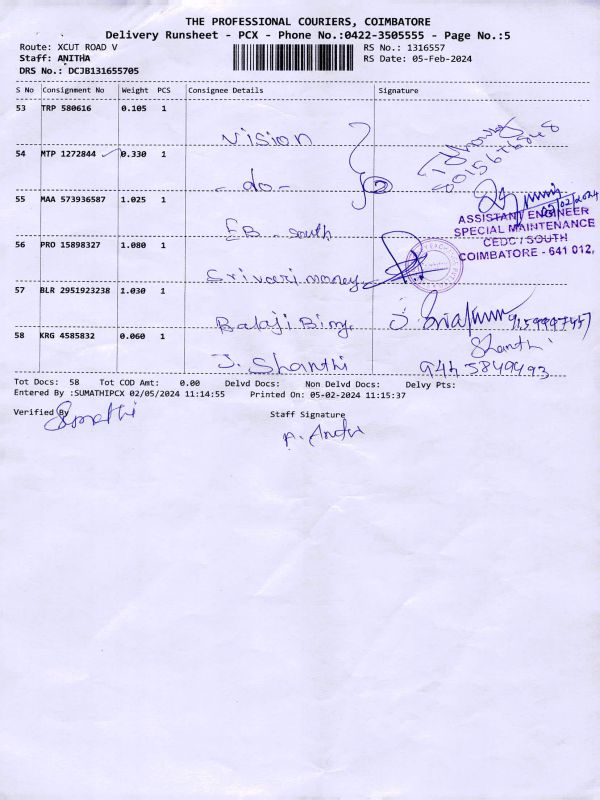 THE PROFESSIONAL COURIERS, COIMBATORE
Delivery Runsheet - PCX - Phone No.:0422-3505555 - Page No.:5
Route: XCUT ROAD V RS No.: 1316557
Staff: ANITHA RS Date: 05-Feb-2024
DRS No.: DCJB131655705
S No Consignment No Weight PCS Consignee Details Signature
53 TRP 580616 0.105 1
Vision
54 MTP 1272844 0.330 1
-do- 2
55 MAA 573936587 1.025 1
ASSISTANT ENGINEER
EB-South SPECIAL MAINTENANCE
CEDC / SOUTH
56 PRO 15898327 1.080 1
COIMBATORE - 641 012.
Srivari money
57 BLR 2951923238 1.030 1
Balaji Bing
58 KRG 4585832 0.060 1
Shanthi
J. Shanthi
Tot Docs: 58 Tot COD Amt: 0.00 Delvd Docs: Non Delvd Docs: Delvy Pts:
Entered By :SUMATHIPCX 02/05/2024 11:14:55 Printed On: 05-02-2024 11:15:37
Verified By Staff Signature
Sumathi